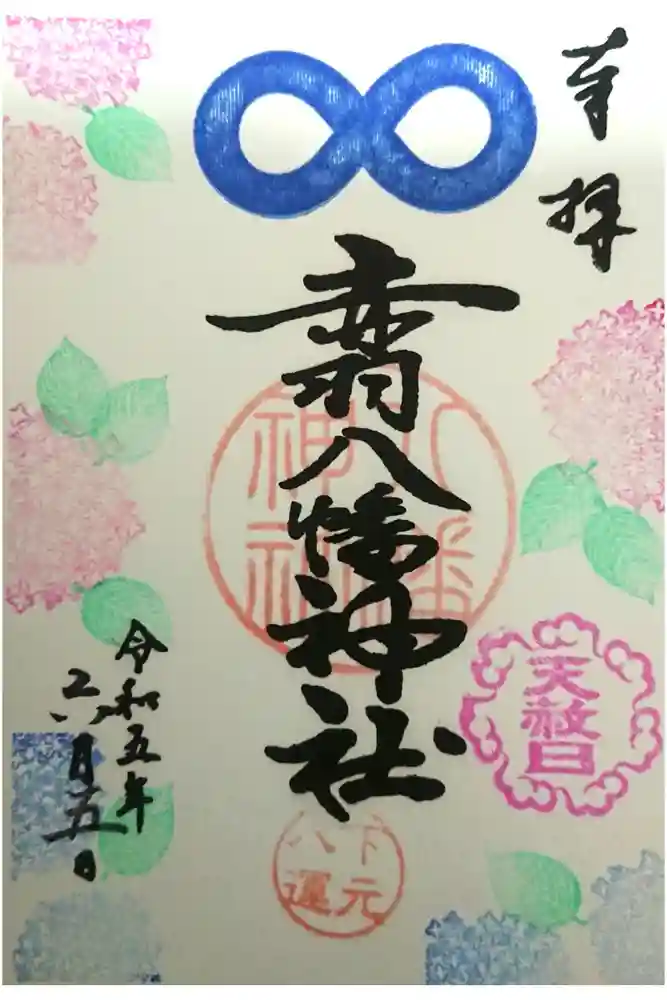 奉拝
八幡神社
八幡
神社
天赦日
下元
八運
令和五年
六月五日